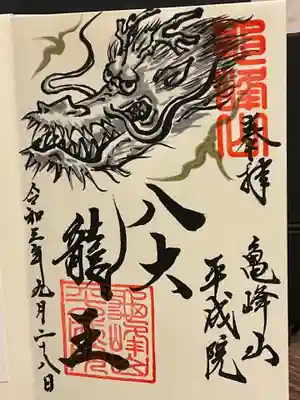 奉拝
亀峰山
平成院
八大
龍王
令和三年九月二十八日
亀峰山